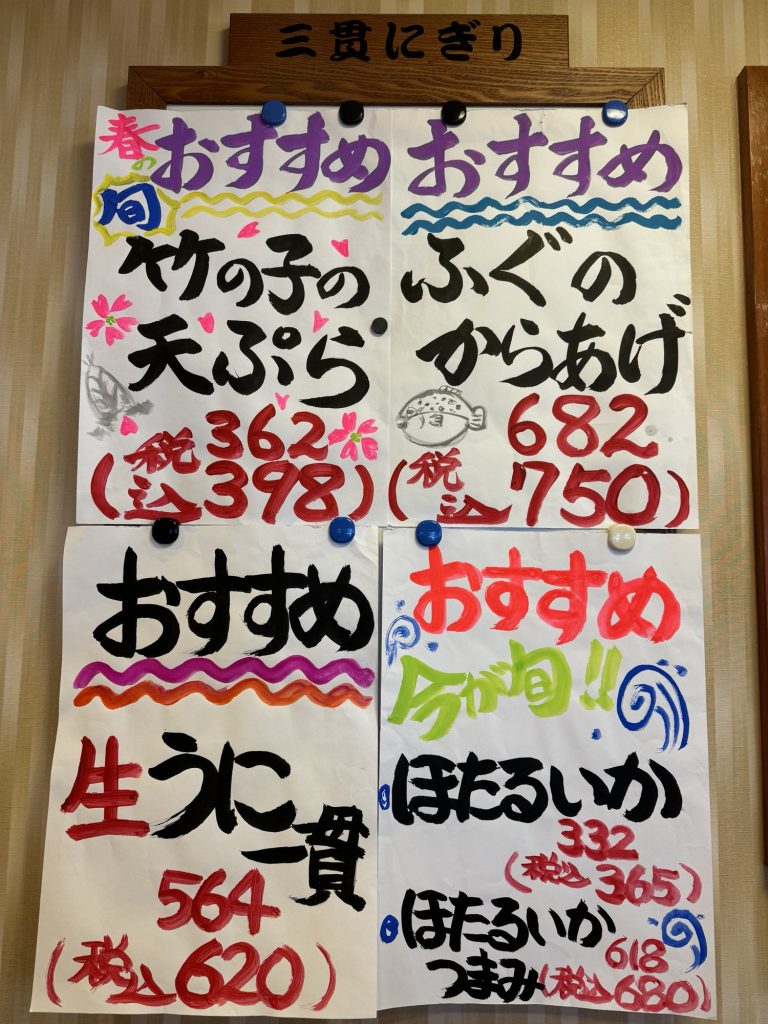 三貫にぎり
春の
旬
おすすめ
竹の子の
天ぷら
362
(税込398)
おすすめ
ふぐの
からあげ
682
(税込750)
おすすめ
生うに
一貫
564
(税込620)
おすすめ
今が旬!!
ほたるいか
332
(税込365)
ほたるいか
つまみ
618
(税込680)